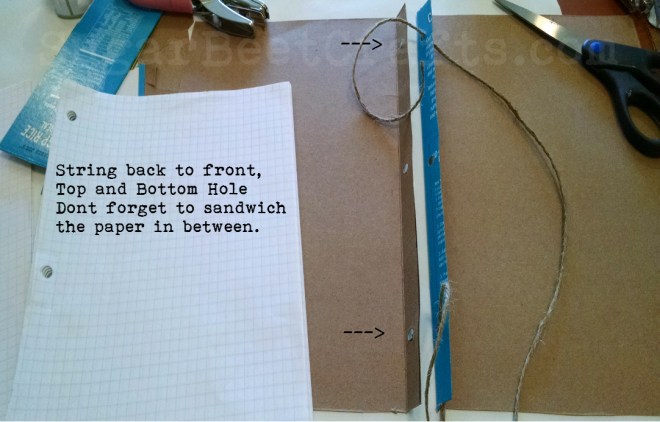 SugarBeetCrafts.com
--->
String back to front,
Top and Bottom Hole
Dont forget to sandwich
the paper in between.
--->